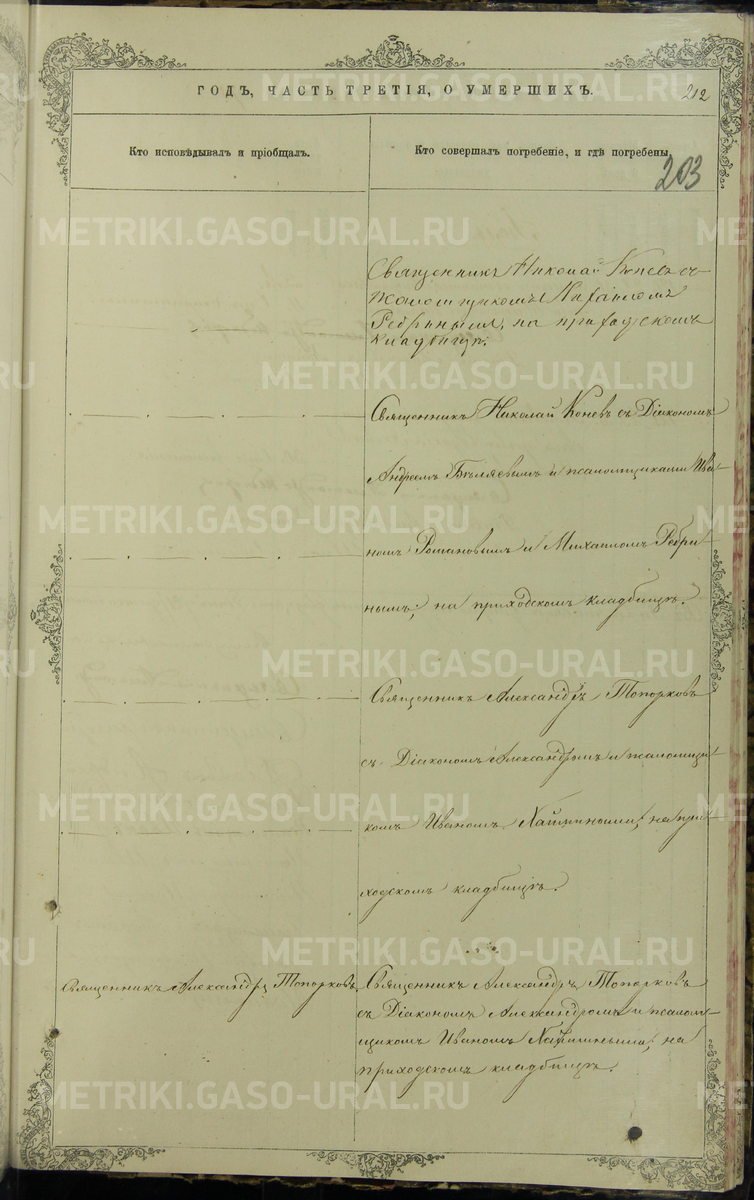 ГОДЪ, ЧАСТЬ ТРЕТІЯ, О УМЕРШИХЪ.
212
Кто исповѣдывалъ и пріобщалъ.
Кто совершалъ погребеніе, и гдѣ погребены.
203
Священникъ Николай Коневъ съ
Псаломщикомъ
Ребринымъ, на приходскомъ
кладбищѣ.
Священникъ Николай Коневъ съ Діакономъ
Андреемъ Бѣляевымъ и псаломщиками Ива-
номъ Романовымъ и Михаиломъ Ребри-
нымъ, на приходскомъ кладбищѣ.
Священникъ Александръ Топорковъ
съ Діакономъ Александромъ и псаломщи-
комъ Иваномъ на при-
ходскомъ кладбищѣ.
Священникъ Александръ Топорковъ
Священникъ Александръ Топорковъ
съ Діакономъ Александромъ и псалом-
щикомъ Иваномъ на
приходскомъ кладбищѣ.
METRIKI.GASO-URAL.RU